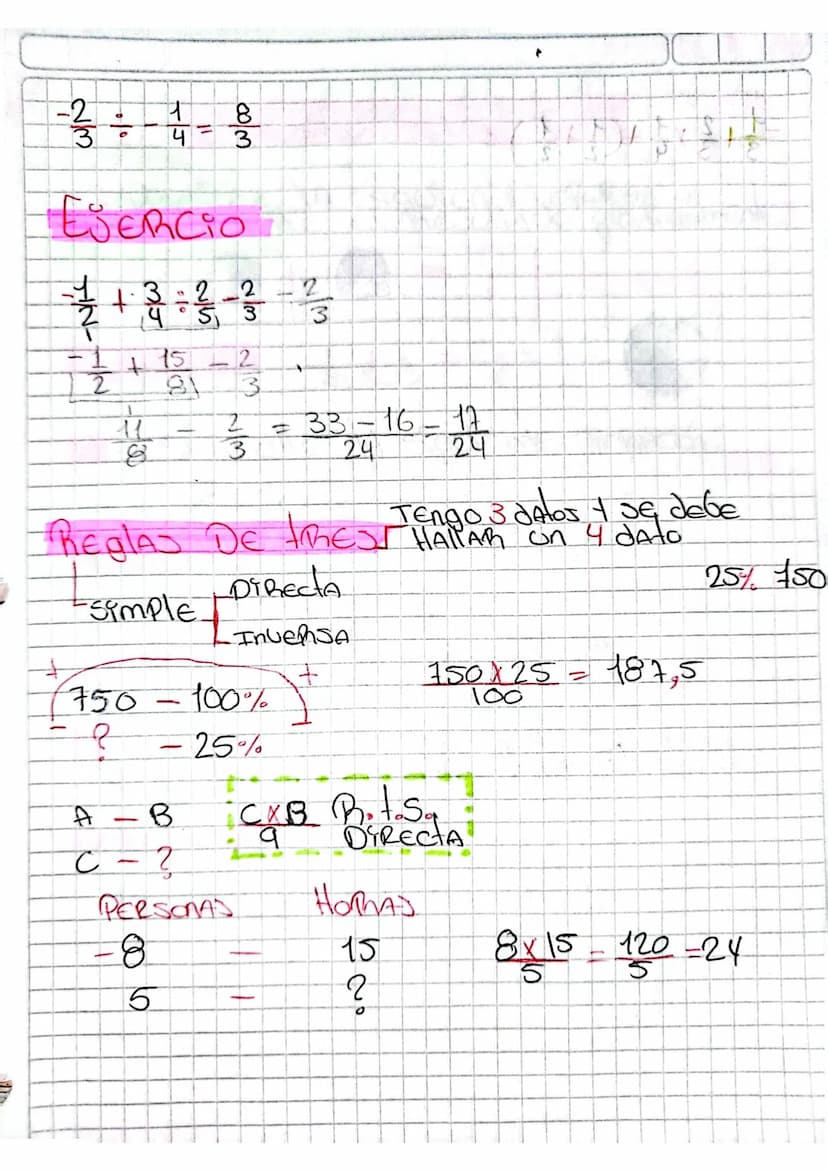 -2/3 ÷ - 1/4 = 8/3
EJERCIO
-1/2 + 3/4 ÷ 2/5 - 2/3 - 2/3
-1/2 + 15/8 - 2/3
11/8 - 2/3 = 33 - 16/24 = 17/24
REGLAS DE TRES
TENGO 3 DATOS Y SE DEBE
HALLAR UN 4 DATO
25% 750
SIMPLE
DIRECTA
INVERSA
+ +
750 - 100%
750 x 25/100 = 187,5
- ? - 25%
A - B
C x B/a R.t.S.
DIRECTA
C - ?
PERSONAS HORAS
-8 - 15
8 x 15/5 = 120/5 = 24
5 - ?